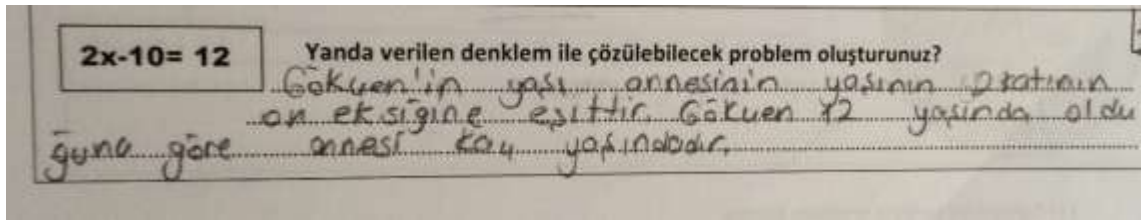 2x-10= 12 Yanda verilen denklem ile çözülebilecek problem oluşturunuz?
Gökçen'in yaşı annesinin yaşının 2 katının
on eksiğine eşittir. Gökçen 12 yaşında oldu
ğuna göre annesi kaç yaşındadır.